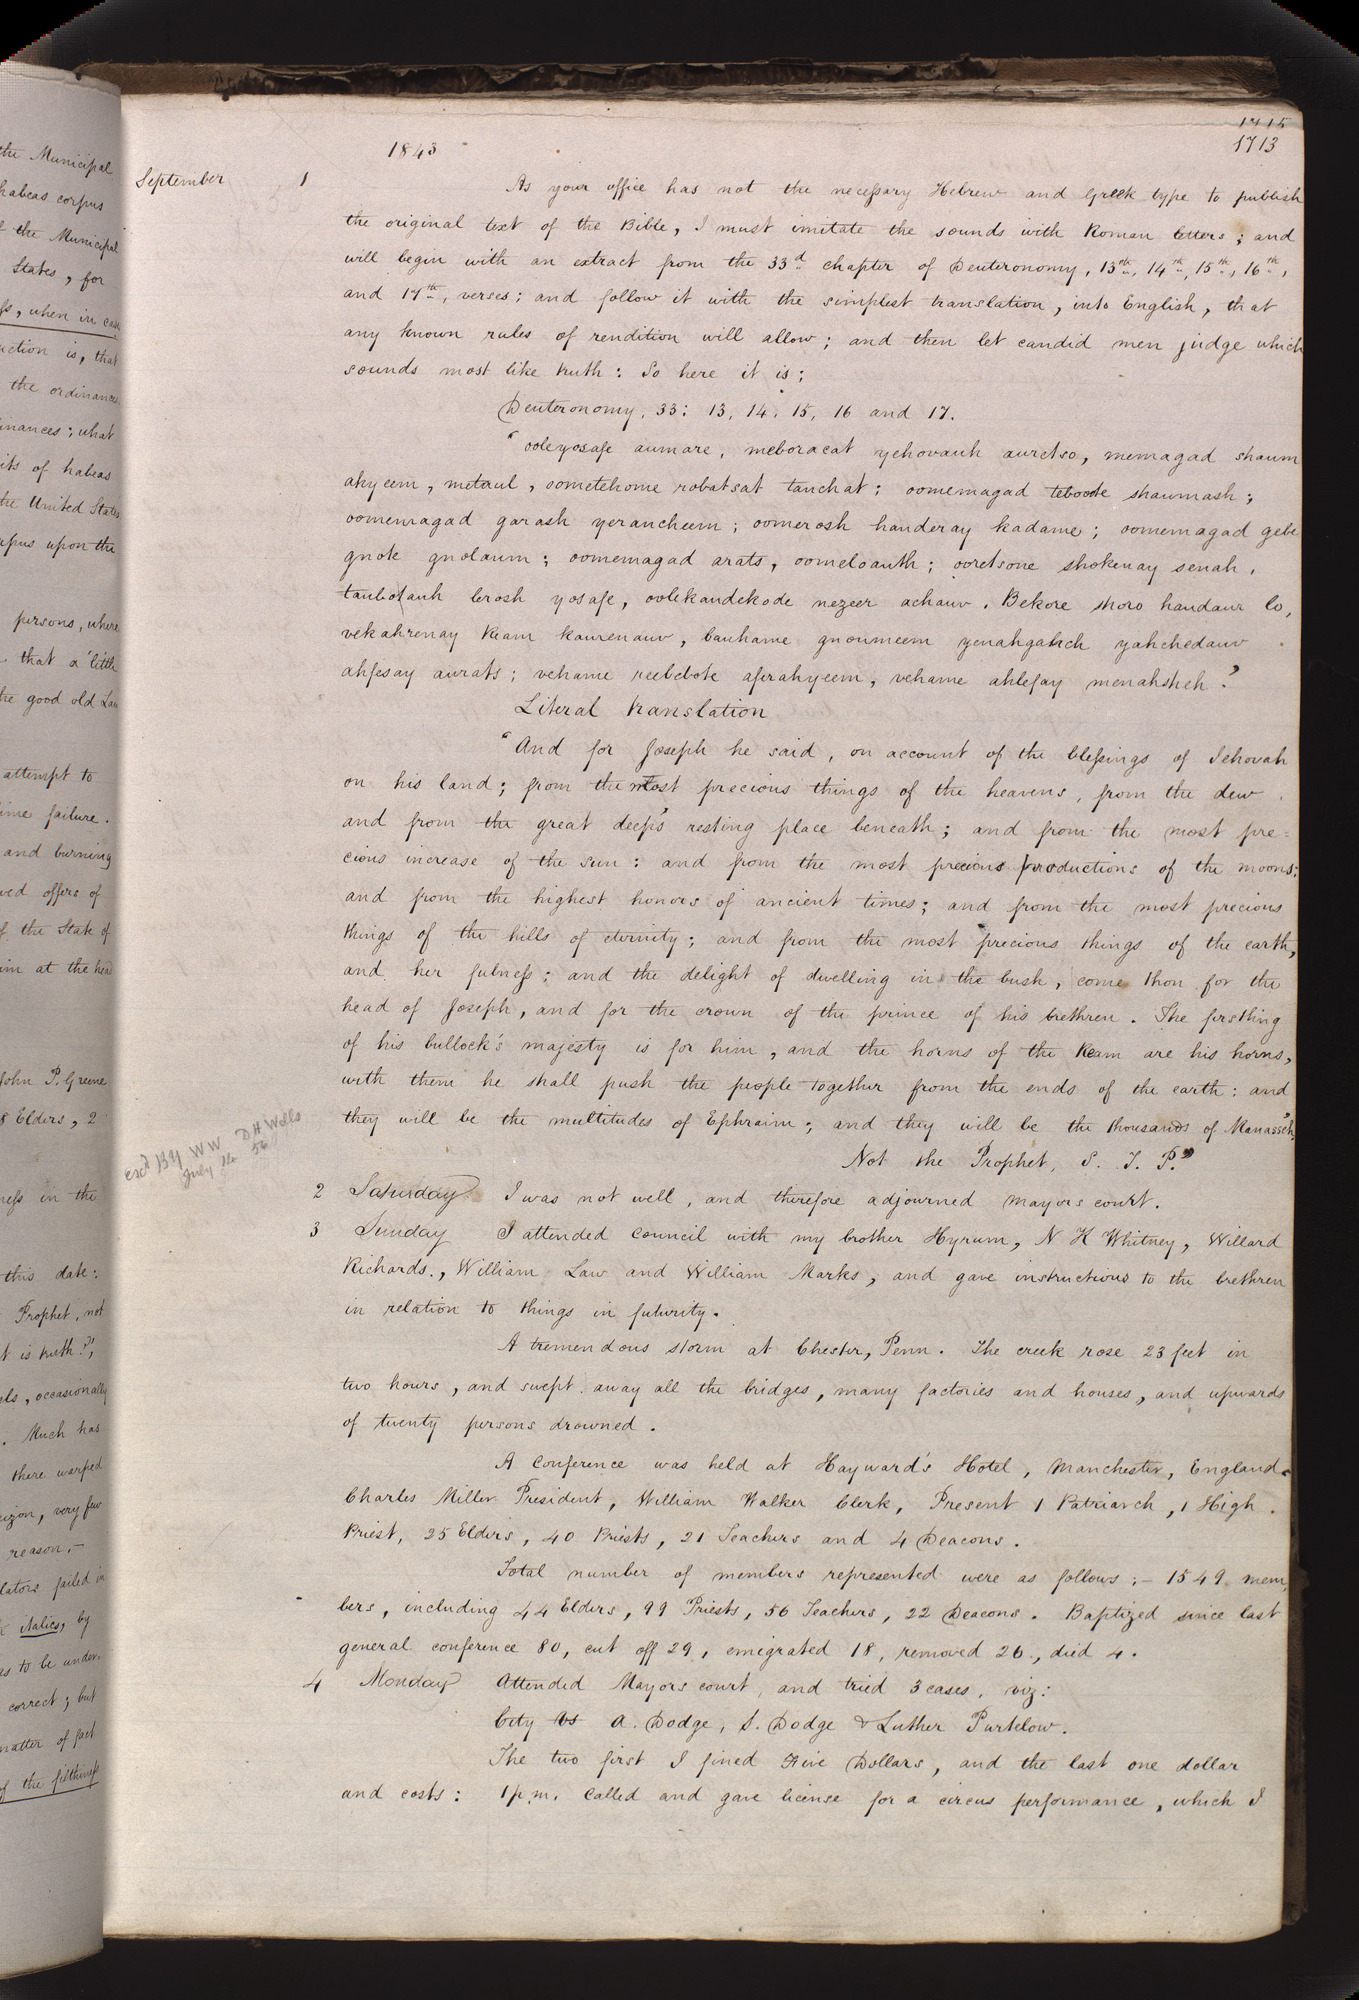 the Municipal
habeas corpus
the Municipal
States, for
when in case
uction is, that
the ordinances
inances; what
its of habeas
the United States
upus upon the
persons, where
that a little
the good old Law
attempt to
ime failure.
and burning
ved offers of
of the State of
im at the head
John P. Greene
8 Elders, 2
ness in the
this date:
Prophet, not
t is truth?",
els, occasionally
. Much has
there warped
izon, very few
reason,-
lators failed in
italics, by
as to be under-
correct; but
matter of fact
of the filthiness
1715
1843 1713
September 1 As your office has not the necessary Hebrew and Greek type to publish
the original text of the Bible, I must imitate the sounds with Roman letters; and
will begin with an extract from the 33d. chapter of Deuteronomy, 13th., 14th., 15th., 16th.,
and 17th., verses; and follow it with the simplest translation, into English, that
any known rules of rendition will allow; and then let candid men judge which
sounds most like truth: So here it is;
Deuteronomy, 33: 13, 14, 15, 16 and 17.
"ooleyosafe aumare, meboracat yehovauh auretso, memagad shaum
ahyeem, metaul, oometehome robatsat tauchat; oomemagad teboote shaumash;
oomemagad garash yerancheem; oomerosh handeray kadame; oomemagad gebe
gnote gnolaum; oomemagad arats, oomeloauth; ooretsone shokenay senah,
taubotauh lerosh yosafe, oolekaudekode nezeer achauv. Bekore shoro haudaur lo,
vekahrenay Ream kaurenauv, bauhame gnoumeem yenahgahch yahchedauv
ahfesay aurats; vehame reebebote afrahyeem, vehame ahlefay menahsheh."
Literal translation
"And for Joseph he said, on account of the blessings of Jehovah
on his land; from the most precious things of the heavens, from the dew
and from the great deep's resting place beneath; and from the most pre=
cious increase of the sun: and from the most precious productions of the moons;
and from the highest honors of ancient times; and from the most precious
things of the hills of eternity; and from the most precious things of the earth,
and her fulness: and the delight of dwelling in the bush, come thou for the
head of Joseph, and for the crown of the prince of his brethren. The firstling
of his bullock's majesty is for him, and the horns of the Ream are his horns,
with them he shall push the people together from the ends of the earth: and
they will be the multitudes of Ephraim; and they will be the thousands of Manasseh."
Not the Prophet, S. J. P."
exd BY WW D H Wells
July 56
2 Saturday I was not well, and therefore adjourned Mayors court.
3 Sunday I attended council with my brother Hyrum, N K Whitney, Willard
Richards., William Law and William Marks, and gave instructions to the brethren
in relation to things in futurity.
A tremendous storm at Chester, Penn. The creek rose 23 feet in
two hours, and swept away all the bridges, many factories and houses, and upwards
of twenty persons drowned.
A Conference was held at Hayward's Hotel, Manchester, England.
Charles Miller President, William Walker Clerk, Present 1 Patriarch, 1 High
Priest, 25 Elders, 40 Priests, 21 Teachers and 4 Deacons.
Total number of members represented were as follows;- 1549 mem,
bers, including 44 Elders, 99 Priests, 56 Teachers, 22 Deacons. Baptized since last
general conference 80, cut off 29, emigrated 18, removed 26, died 4.
4 Monday Attended Mayors court, and tried 3 cases, viz:
City vs A. Dodge, S. Dodge & Luther Purtelow.
The two first I fined Five Dollars, and the last one dollar
and costs: 1 p.m. Called and gave license for a circus performance, which I